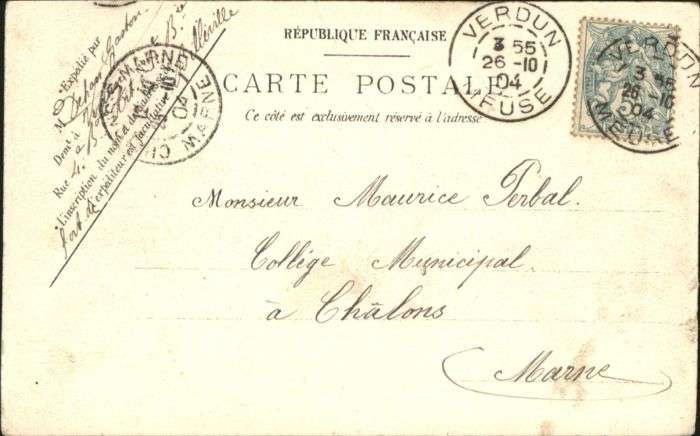 RÉPUBLIQUE FRANÇAISE
CARTE POSTALE
Ce côté est exclusivement réservé à l'adresse
VERDUN
3 55
26 -10
04
MEUSE
VERDUN
3 55
26 -10
04
MEUSE
MARNE
04
MARNE
Expédié par
M Gaston
Demt à
Rue 4. B
L'inscription du nom & de
l'expéditeur est facultative
Monsieur Maurice Perbal.
Collége Municipal.
à Châlons
Marne